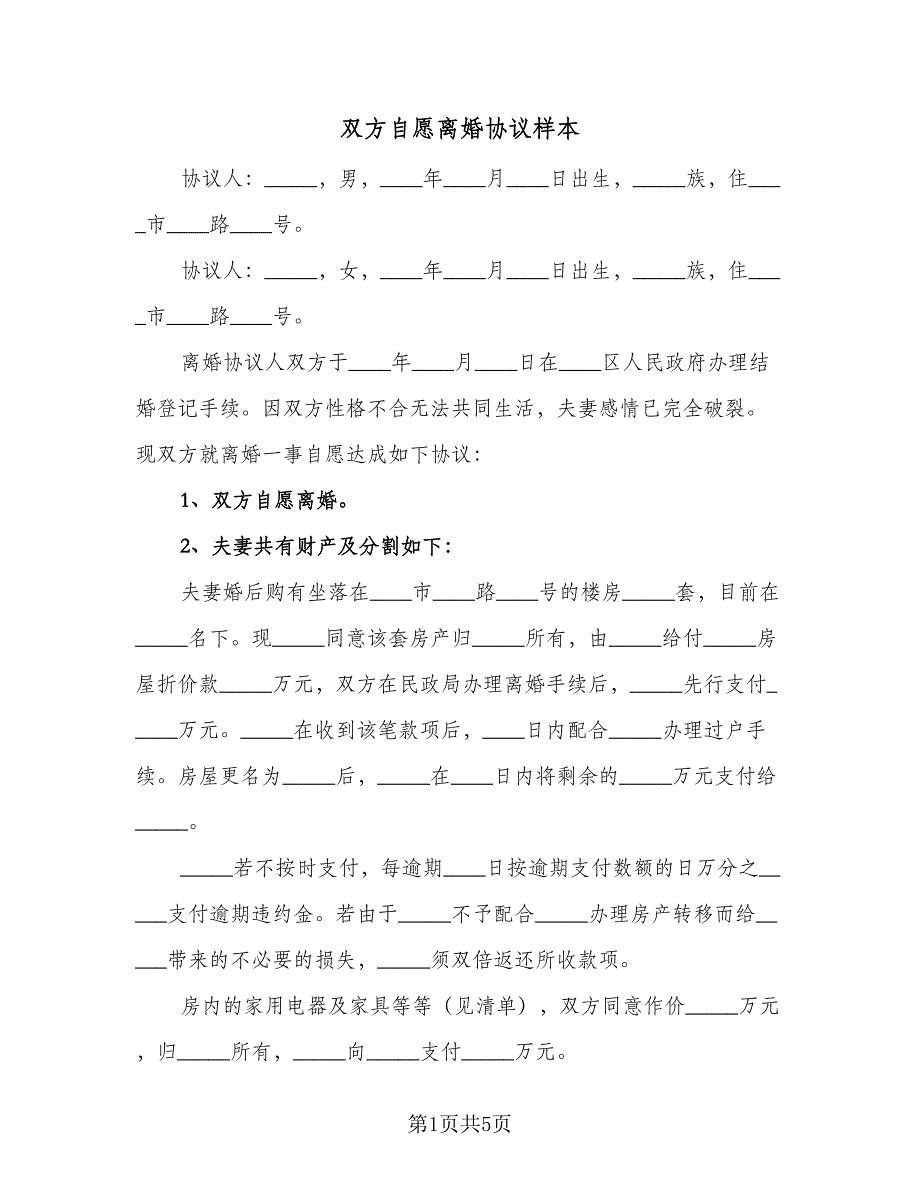 双方自愿离婚协议样本
协议人：_____，男，____年____月____日出生，_____族，住___
_市____路____号。
协议人：_____，女，____年____月____日出生，_____族，住___
_市____路____号。
离婚协议人双方于____年____月____日在____区人民政府办理结
婚登记手续。因双方性格不合无法共同生活，夫妻感情已完全破裂。
现双方就离婚一事自愿达成如下协议：
1、双方自愿离婚。
2、夫妻共有财产及分割如下：
夫妻婚后购有坐落在____市____路____号的楼房_____套，目前在
_____名下。现_____同意该套房产归_____所有，由_____给付_____房
屋折价款_____万元，双方在民政局办理离婚手续后，_____先行支付_
____万元。_____在收到该笔款项后，____日内配合_____办理过户手
续。房屋更名为_____后，_____在____日内将剩余的_____万元支付给
_____。
_____若不按时支付，每逾期____日按逾期支付数额的日万分之__
___支付逾期违约金。若由于_____不予配合_____办理房产转移而给__
___带来的不必要的损失，_____须双倍返还所收款项。
房内的家用电器及家具等等（见清单），双方同意作价_____万元
，归_____所有，_____向_____支付_____万元。
第1页共5页